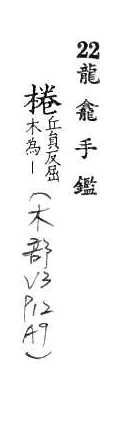 22龍龕手鑑
棬丘員反屈
木為｜
(木部
V3
P12
A9)